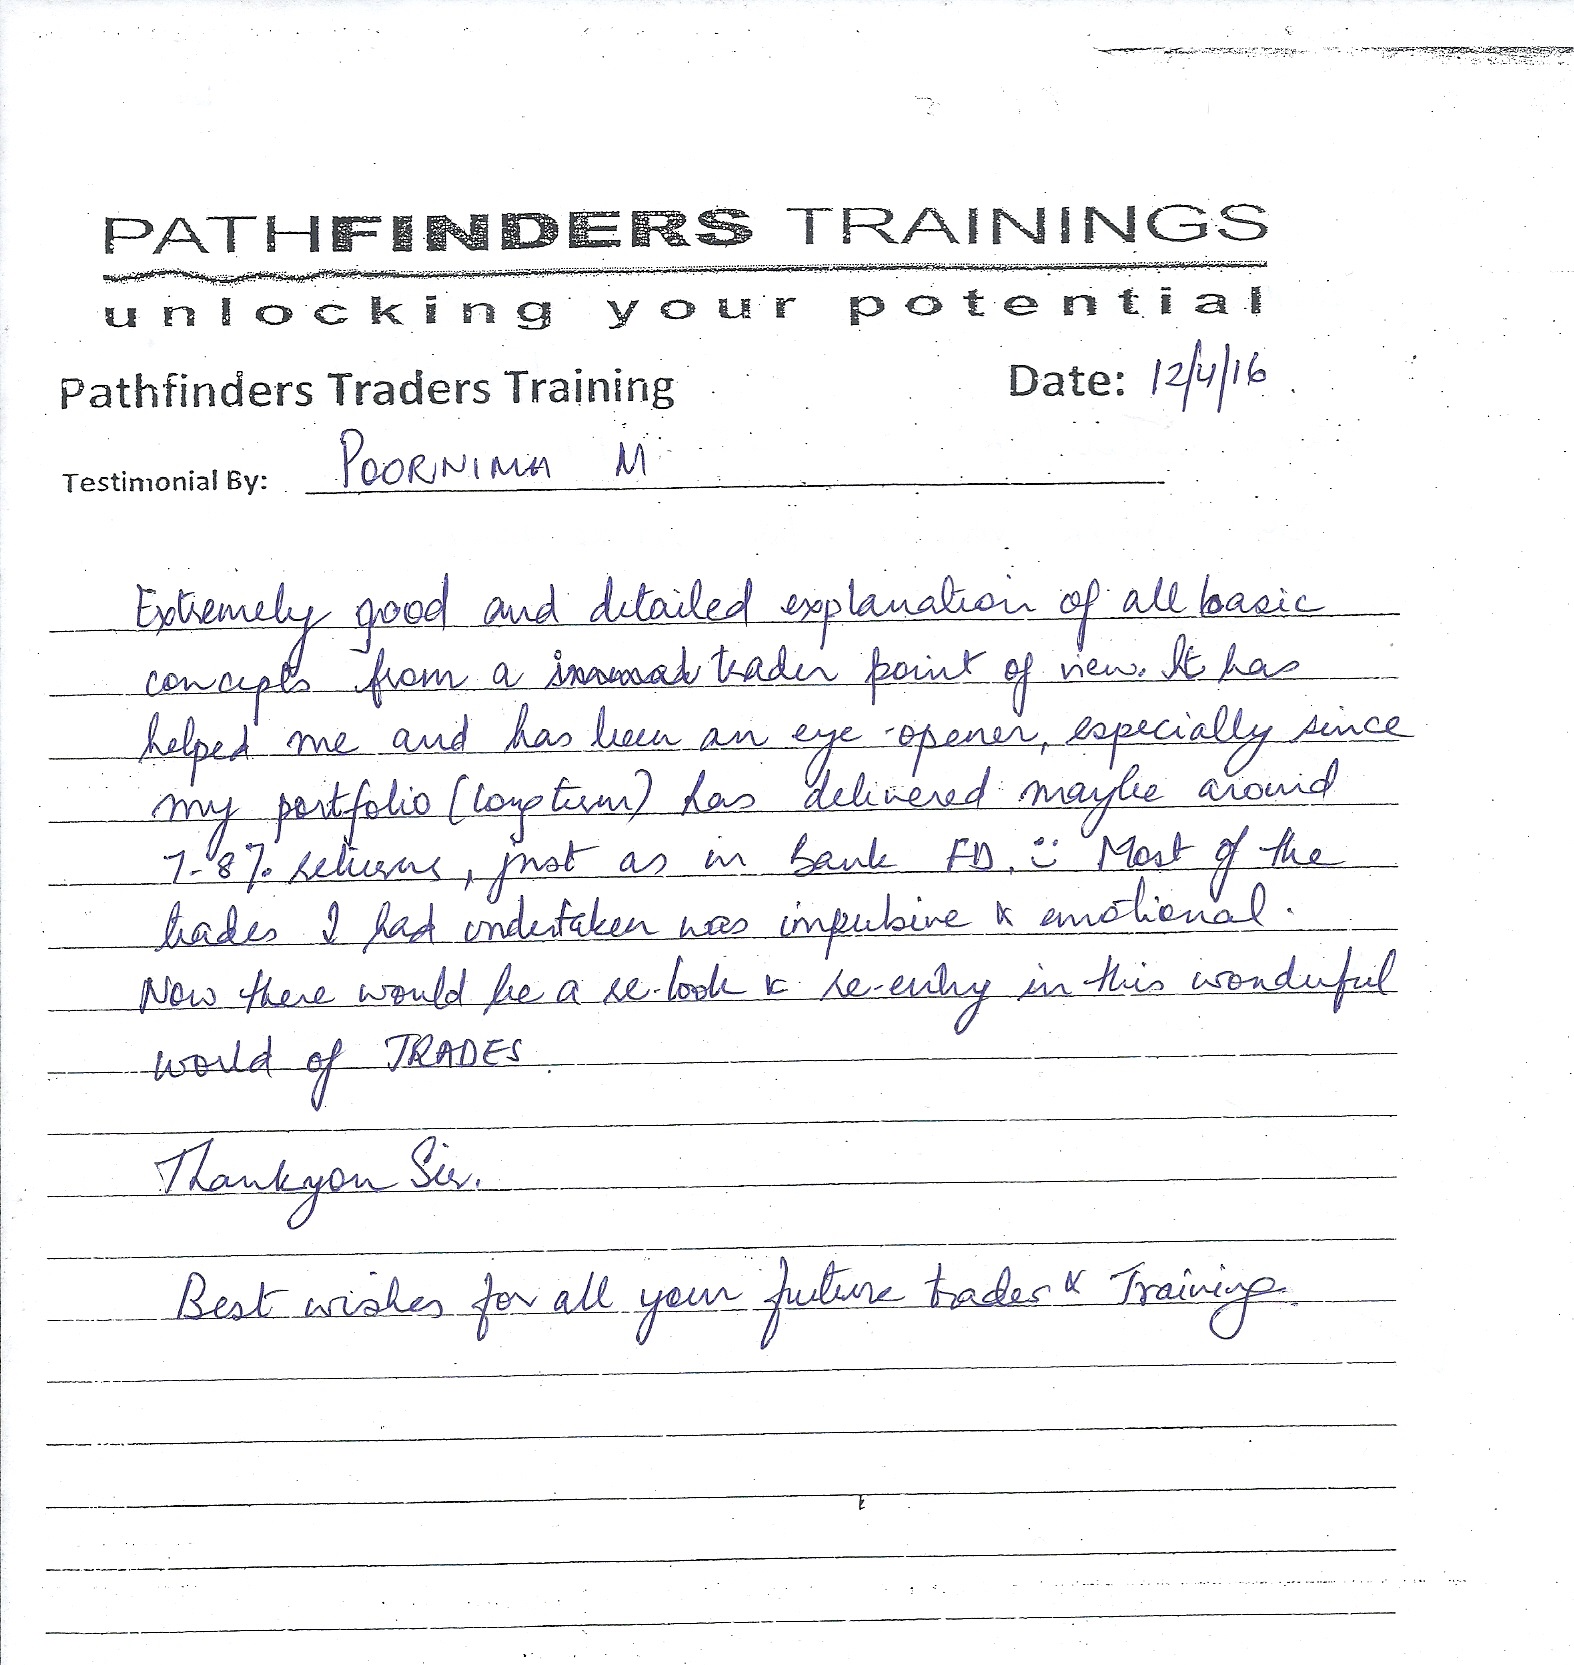 PATHFINDERS TRAININGS
unlocking your potential
Pathfinders Traders Training Date: 12/4/16
Testimonial By: POORNIMA M
Extremely good and detailed explanation of all basic
concepts from a trader point of view. It has
helped me and has been an eye-opener, especially since
my portfolio (long term) has delivered maybe around
7-8% returns, just as in Bank FD. Most of the
trades I had undertaken was impulsive & emotional.
Now there would be a re-look & re-entry in this wonderful
world of TRADES
Thankyou Sir.
Best wishes for all your future trades & Training.